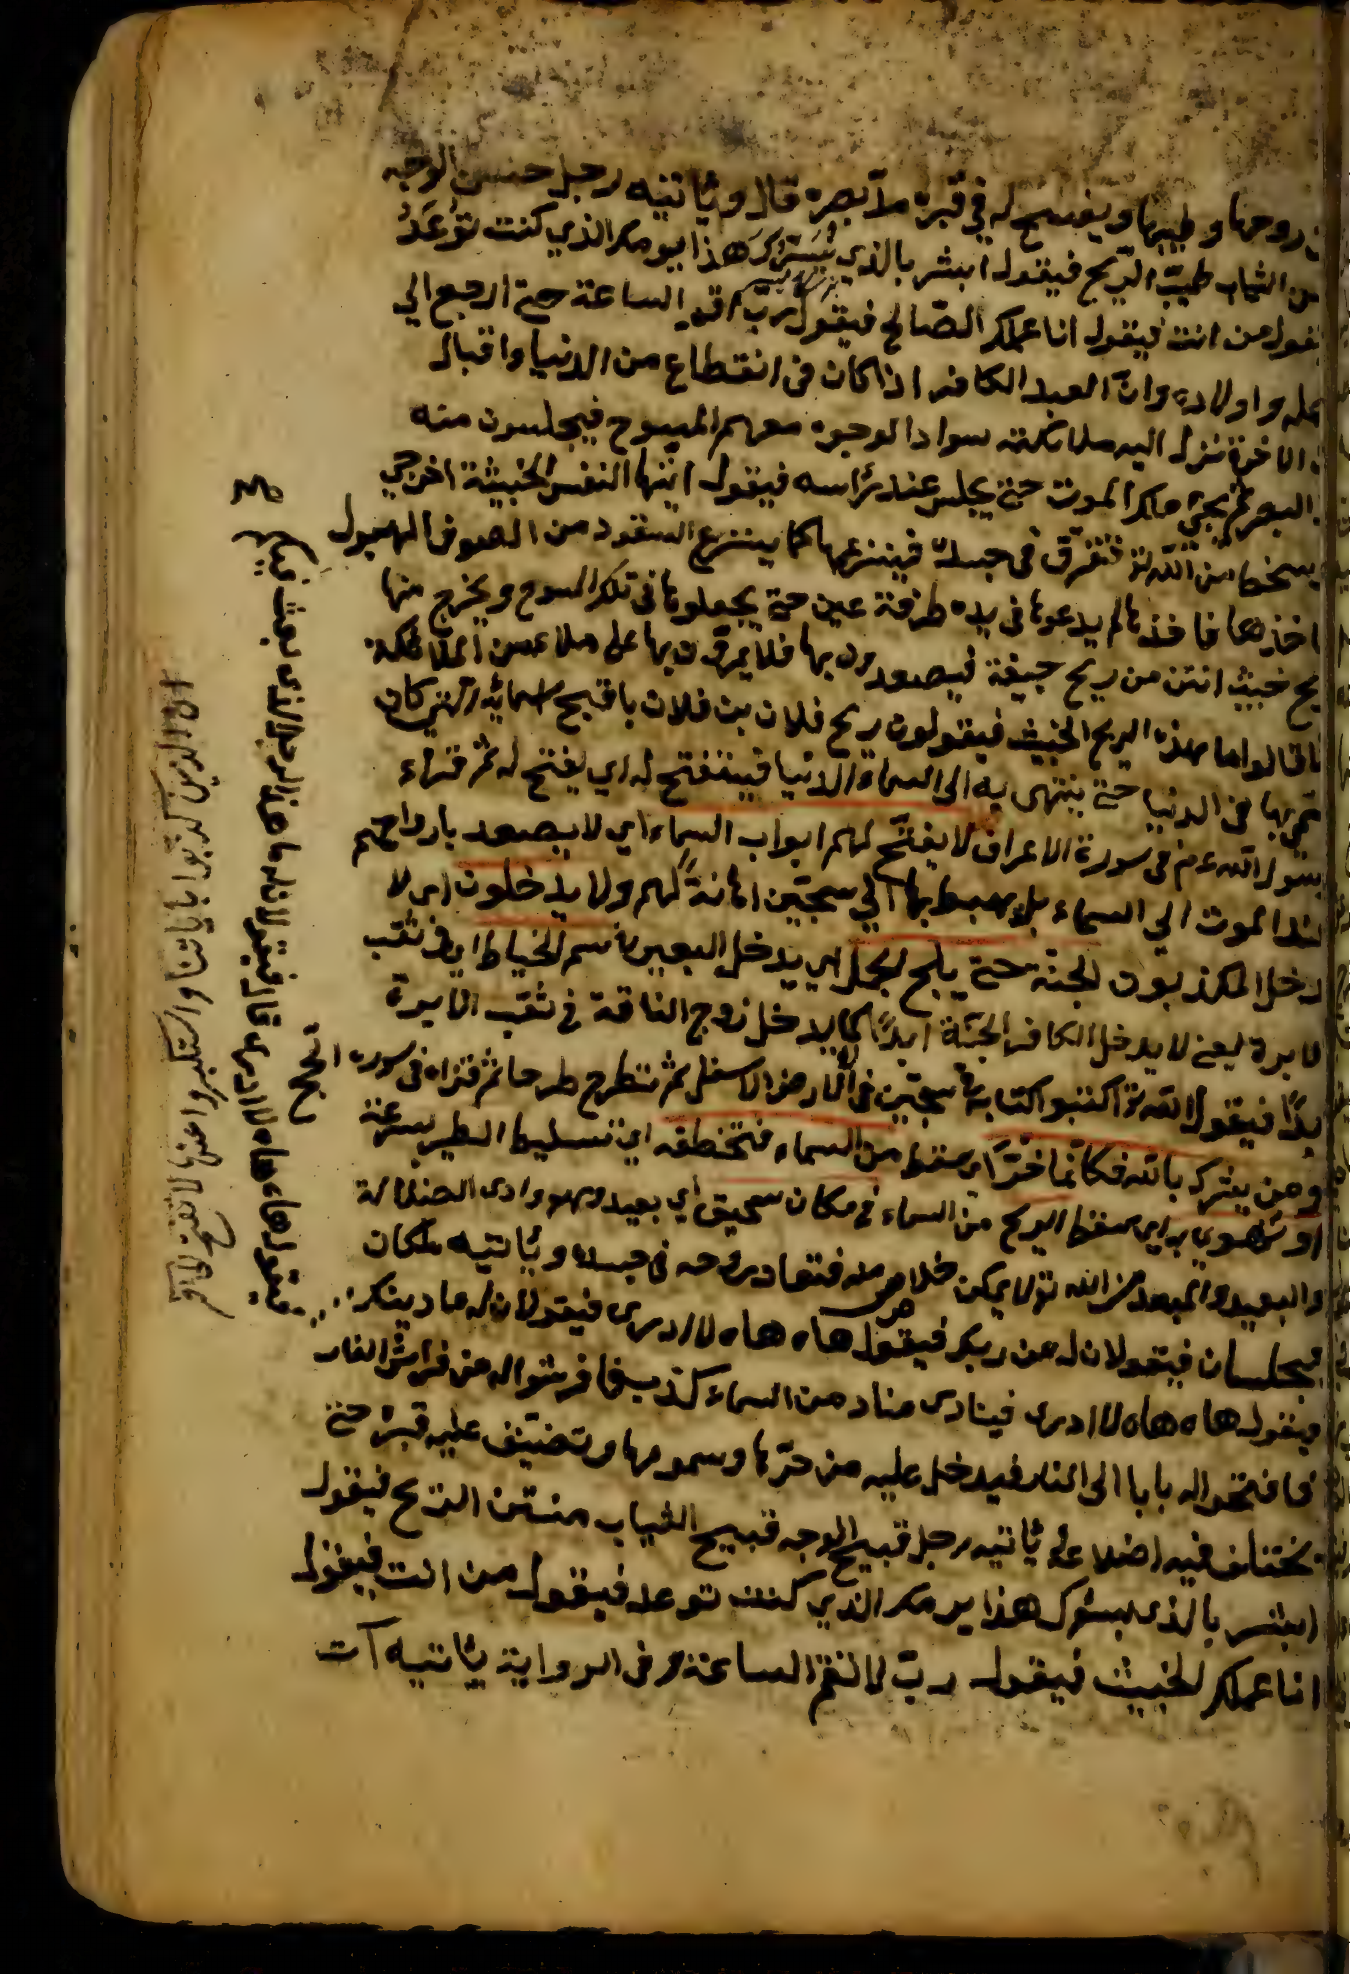 روحها وطيبها ويفسح له في قبره مد بصره قال وياتيه رجل حسن الوجه
الثياب طيب الريح فيقول ابشر بالذي يسرك هذا يومك الذي كنت توعد
من انت فيقول انا عملك الصالح فيقول رب اقم الساعة حتى ارجع الي
واولاده وان العبد الكافر اذا كان في انقطاع من الدنيا واقبال
الاخرة نزل اليه ملائكته سواد الوجوه معهم المسوح فيجلسون منه
البصر ثم يجئ ملك الموت حتى يجلس عند رأسه فيقول ايتها النفس الخبيثة اخرجي
بسخط من الله تع فتفرق في جسده فينزعها كما ينتزع السفود من الصوف المبلول
اخذها فاخذها لم يدعوها في يده طرفة عين حتى يجعلوها في تلك المسوح ويخرج منها
ريح خبيث انتن من ريح جيفة فيصعدون بها فلا يمرون بها على ملاء من الملائكة
قالوا ما هذه الريح الخبيث فيقولون ريح فلان بن فلان باقبح اسمائه التي كان
بها في الدنيا حتى ينتهى به الى السماء الدنيا فيستفتح له اي يفتح له ثم قراء
رسول الله عم في سورة الاعراف لا يفتح لهم ابواب السماء اي لا يصعد بارواحهم
عند الموت الي السماء بل يهبط بها الي سجين اهانة لهم ولا يدخلون اي لا
يدخل المكذبون الجنة حتى يلج الجمل اي يدخل البعير في سم الخياط اي في ثقب
الابرة يعني لا يدخل الكافر الجنة ابدا كما لا يدخل زوج الناقة في ثقب الابرة
ابدا فيقول الله تع اكتبوا كتابه في سجين في الارض الاسفل ثم تطرح طرحا ثم قراء في سورة الحج
ومن يشرك بالله فكانما خر اي سقط من السماء فتخطفه اي تسليط الطير بسرعة
او تهوي به اي سقط الريح من السماء في مكان سحيق اي بعيد وهو وادى الضلالة
والبعيد والمبعد من الله تع لا يمكن خلاص منه فتعاد روحه في جسده وياتيه ملكان
فيجلسان فيقولان له من ربك فيقول هاه هاه لا ادرى فيقولان له ما دينك
فيقول هاه هاه لا ادرى فينادى مناد من السماء كذب فافرشوا له من فراش النار
فافتحوا له بابا الى النار فيدخل عليه من حرها وسمومها وتضيق عليه قبره حتى
يختلف فيه اضلاعه ياتيه رجل قبيح الوجه قبيح الثياب منتن الريح فيقول
ابشر بالذى يسؤك هذا يومك الذي كنت توعد فيقول من انت فيقول
انا عملك الخبيث فيقول رب لا تقم الساعة وفي الرواية ياتيه آت
فيقولان له ما هذا الرجل الذى بعث فيكم فيقول هاه هاه لا ادرى
ان الذين كذبوا باياتنا واستكبروا عنها لا تفتح لهم